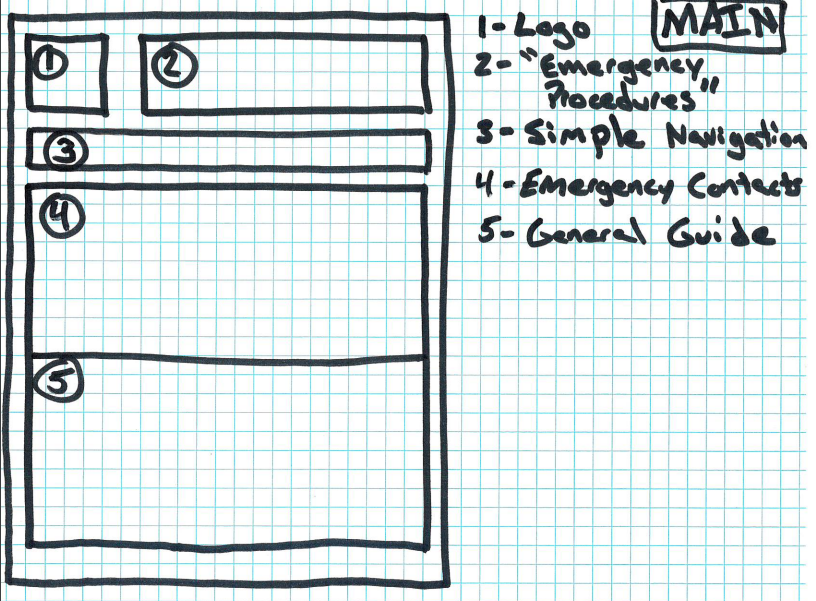 MAIN
1- Logo
2- "Emergency
Procedures"
3- Simple Navigation
4- Emergency Contacts
5- General Guide
1
2
3
4
5